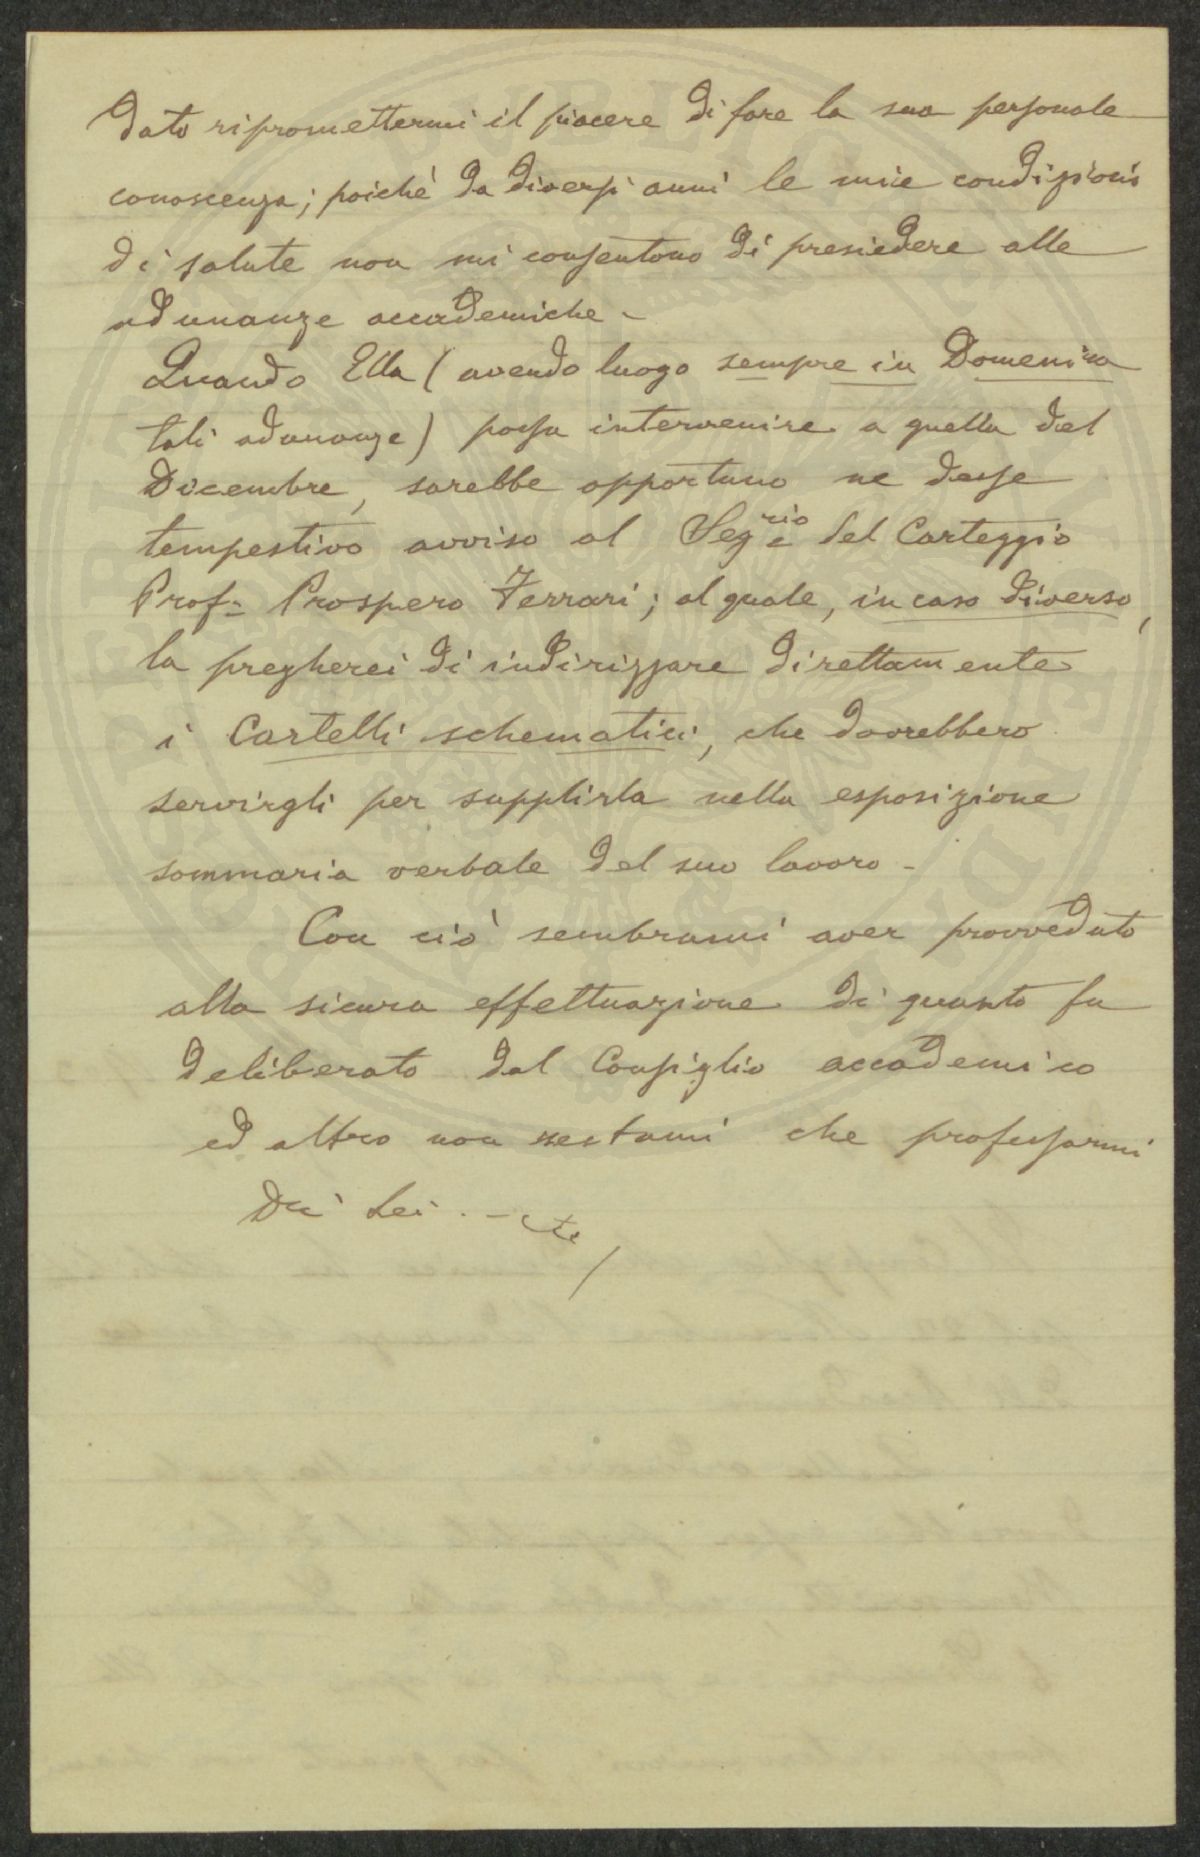 dato ripromettermi il piacere di fare la sua personale
conoscenza; poichè da diversi anni le mie condizioni
di salute non mi consentono di presiedere alle
adunanze accademiche -
Quando Ella (avendo luogo sempre in Domenica
tali adunanze) possa intervenire a quella del
Dicembre, sarebbe opportuno ne desse
tempestivo avviso al Seg.rio del Carteggio
Prof. Prospero Ferrari; al quale, in caso diverso,
la pregherei di indirizzare direttamente
i Cartelli schematici, che dovrebbero
servirgli per supplirla nella esposizione
sommaria verbale del suo lavoro -
Con ciò sembrami aver provveduto
alla sicura effettuazione di quanto fu
deliberato dal Consiglio accademico
ed altro non restami che professarmi
Di Lei . -